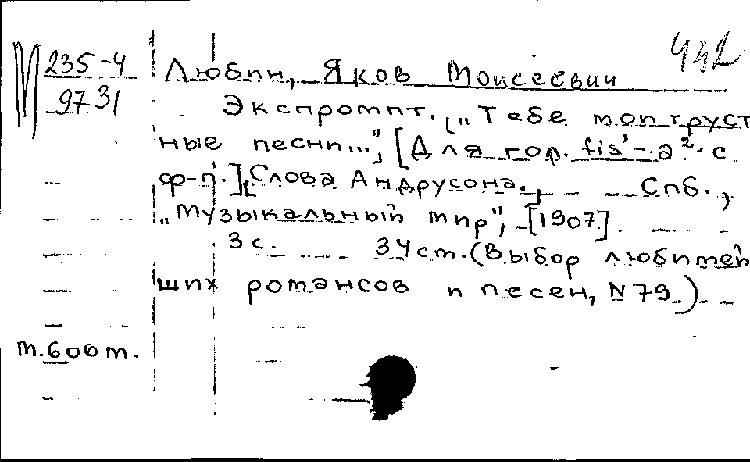 М 235-4
9731
442
Любин, Яков Моисеевич
Экспромпт. [„Тебе мои груст
ные песни...", [Для гор. fis¹-a². с
ф-п.] [Слова Андрусона.] Спб.,
„Музыкальный мир", [1907].
3 с. 34 ст. (Выбор любимей
ших романсов и песен, N 79.)
т.600т.